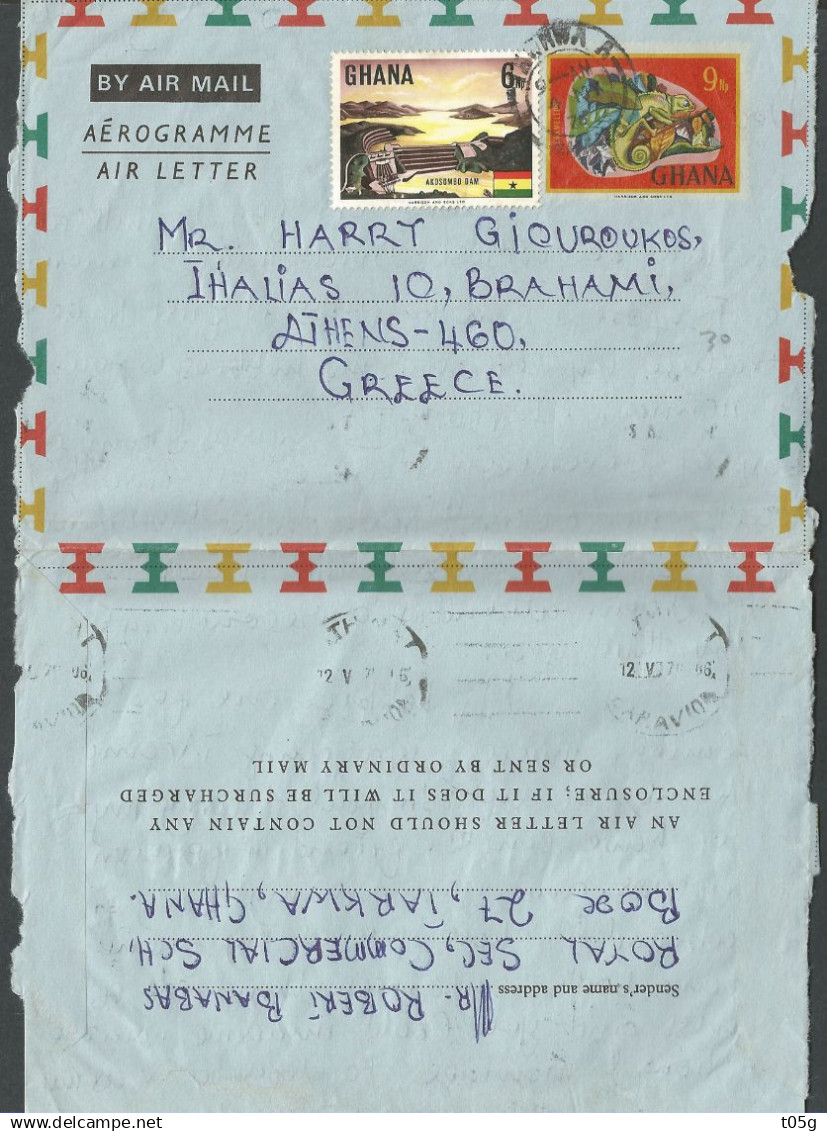 BY AIR MAIL
AÉROGRAMME
AIR LETTER
GHANA 6
AKOSOMBO DAM
HARRISON AND SONS LTD
9 Np
GHANA
HARRISON AND SONS LTD
MR. HARRY GIOUROUKOS,
IHALIAS 10, BRAHAMI,
ATHENS-460.
GREECE.
30
12 V
12 V
PAR AVION
AN AIR LETTER SHOULD NOT CONTAIN ANY
ENCLOSURE; IF IT DOES IT WILL BE SURCHARGED
OR SENT BY ORDINARY MAIL
Sender's name and address MR. ROBERT BANABAS
ROYAL SEC, COMMERCIAL SCH,
BOX 27, TARKWA, GHANA.
t05g